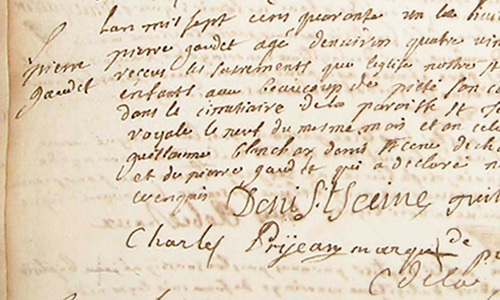 Lan mil sept cens quarante un le hui
pierre gaudet agé denuiron quatre vin
pierre
gaudet
receus les sacrements que leglise nostre
enfants auec beaucoup de pieté son co
dans le cimitiaire de la paroisse st
royale le neuf du mesme mois et an
guillaume blanchar denis st cene de cha
et de pierre gaudet qui a déclaré n
Denis St Seine guil
Charles Prijean marque de
de la